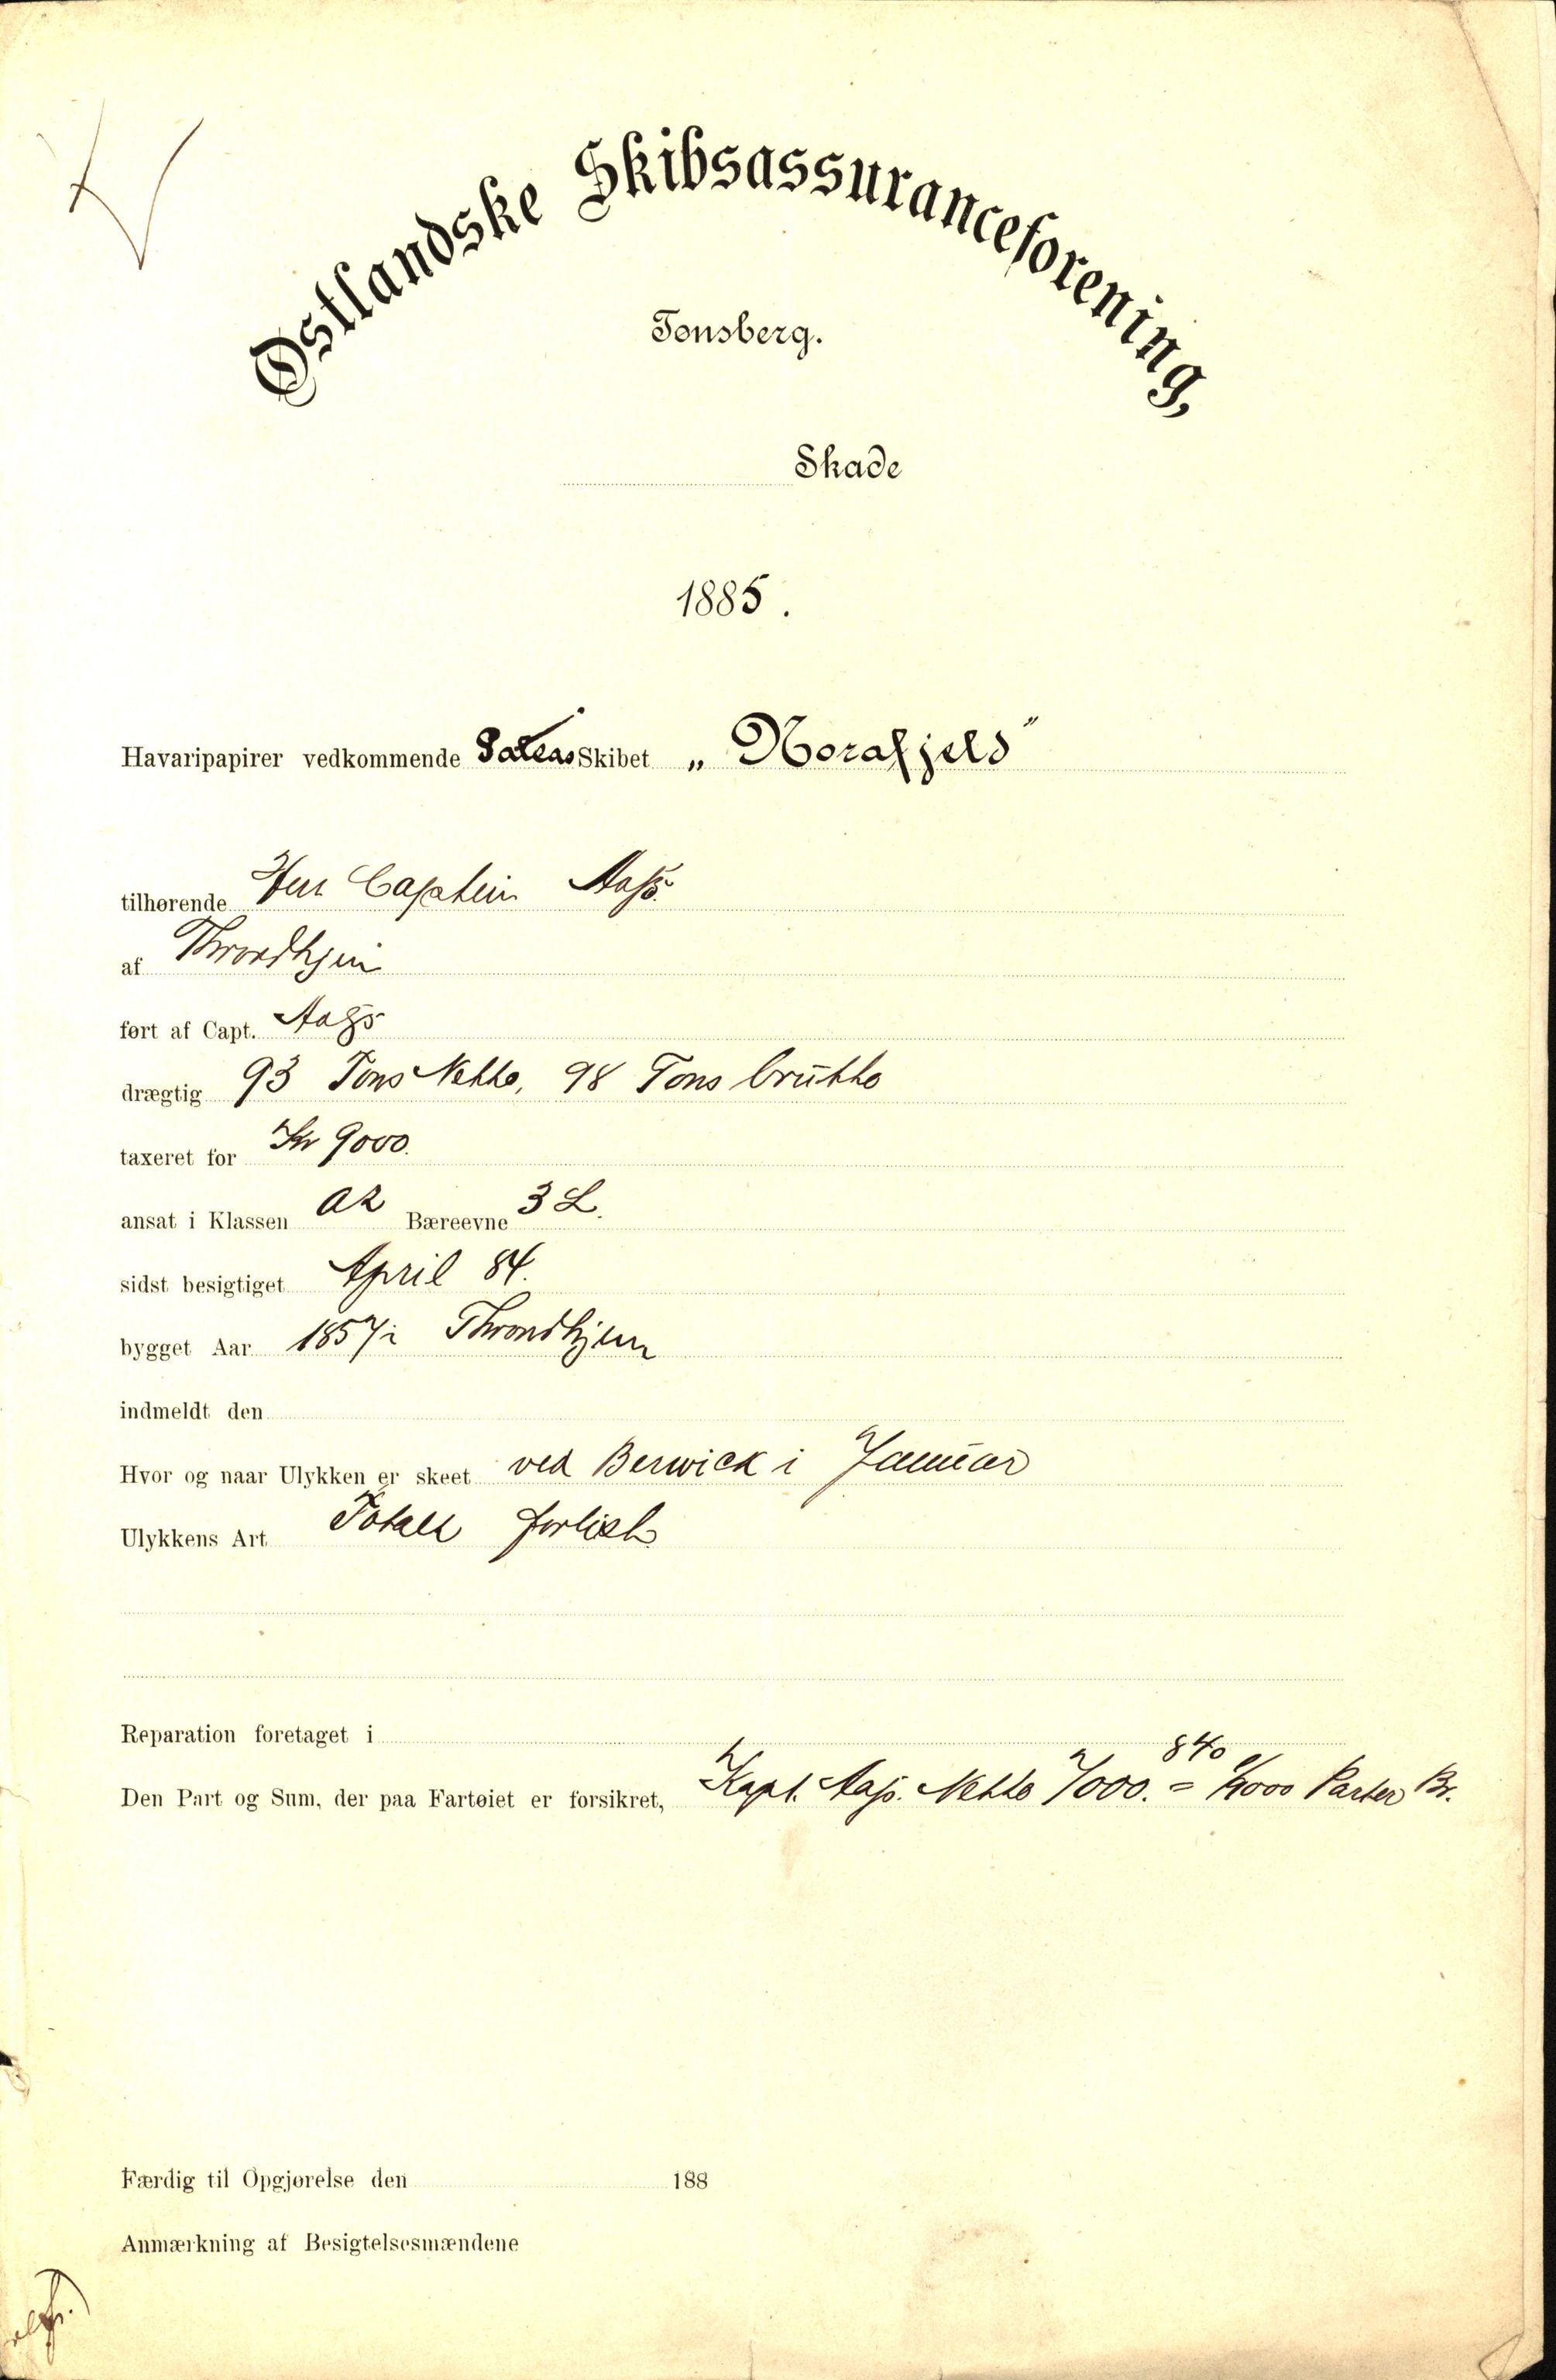 Østlandske Skibsassuranceforening,
Tønsberg.
Skade
1885.
Havaripapirer vedkommende Galeas Skibet „Norafjeld"
tilhørende Herr Captein Aass.
af Throndhjem
ført af Capt. Aass
drægtig 93 Tons Netto, 98 Tons brutto
taxeret for Kr 9000.
ansat i Klassen A2 Bæreevne 3 L.
sidst besigtiget April 84.
bygget Aar 1857 i Throndhjem
indmeldt den
Hvor og naar Ulykken er skeet ved Berwick i Januar
Ulykkens Art Totalt forlist
Reparation foretaget i
Den Part og Sum, der paa Fartøiet er forsikret, Kapt. Aass. Netto 7/000. = 840/9000 Parter Br.
Færdig til Opgjørelse den 188
Anmærkning af Besigtelsesmændene